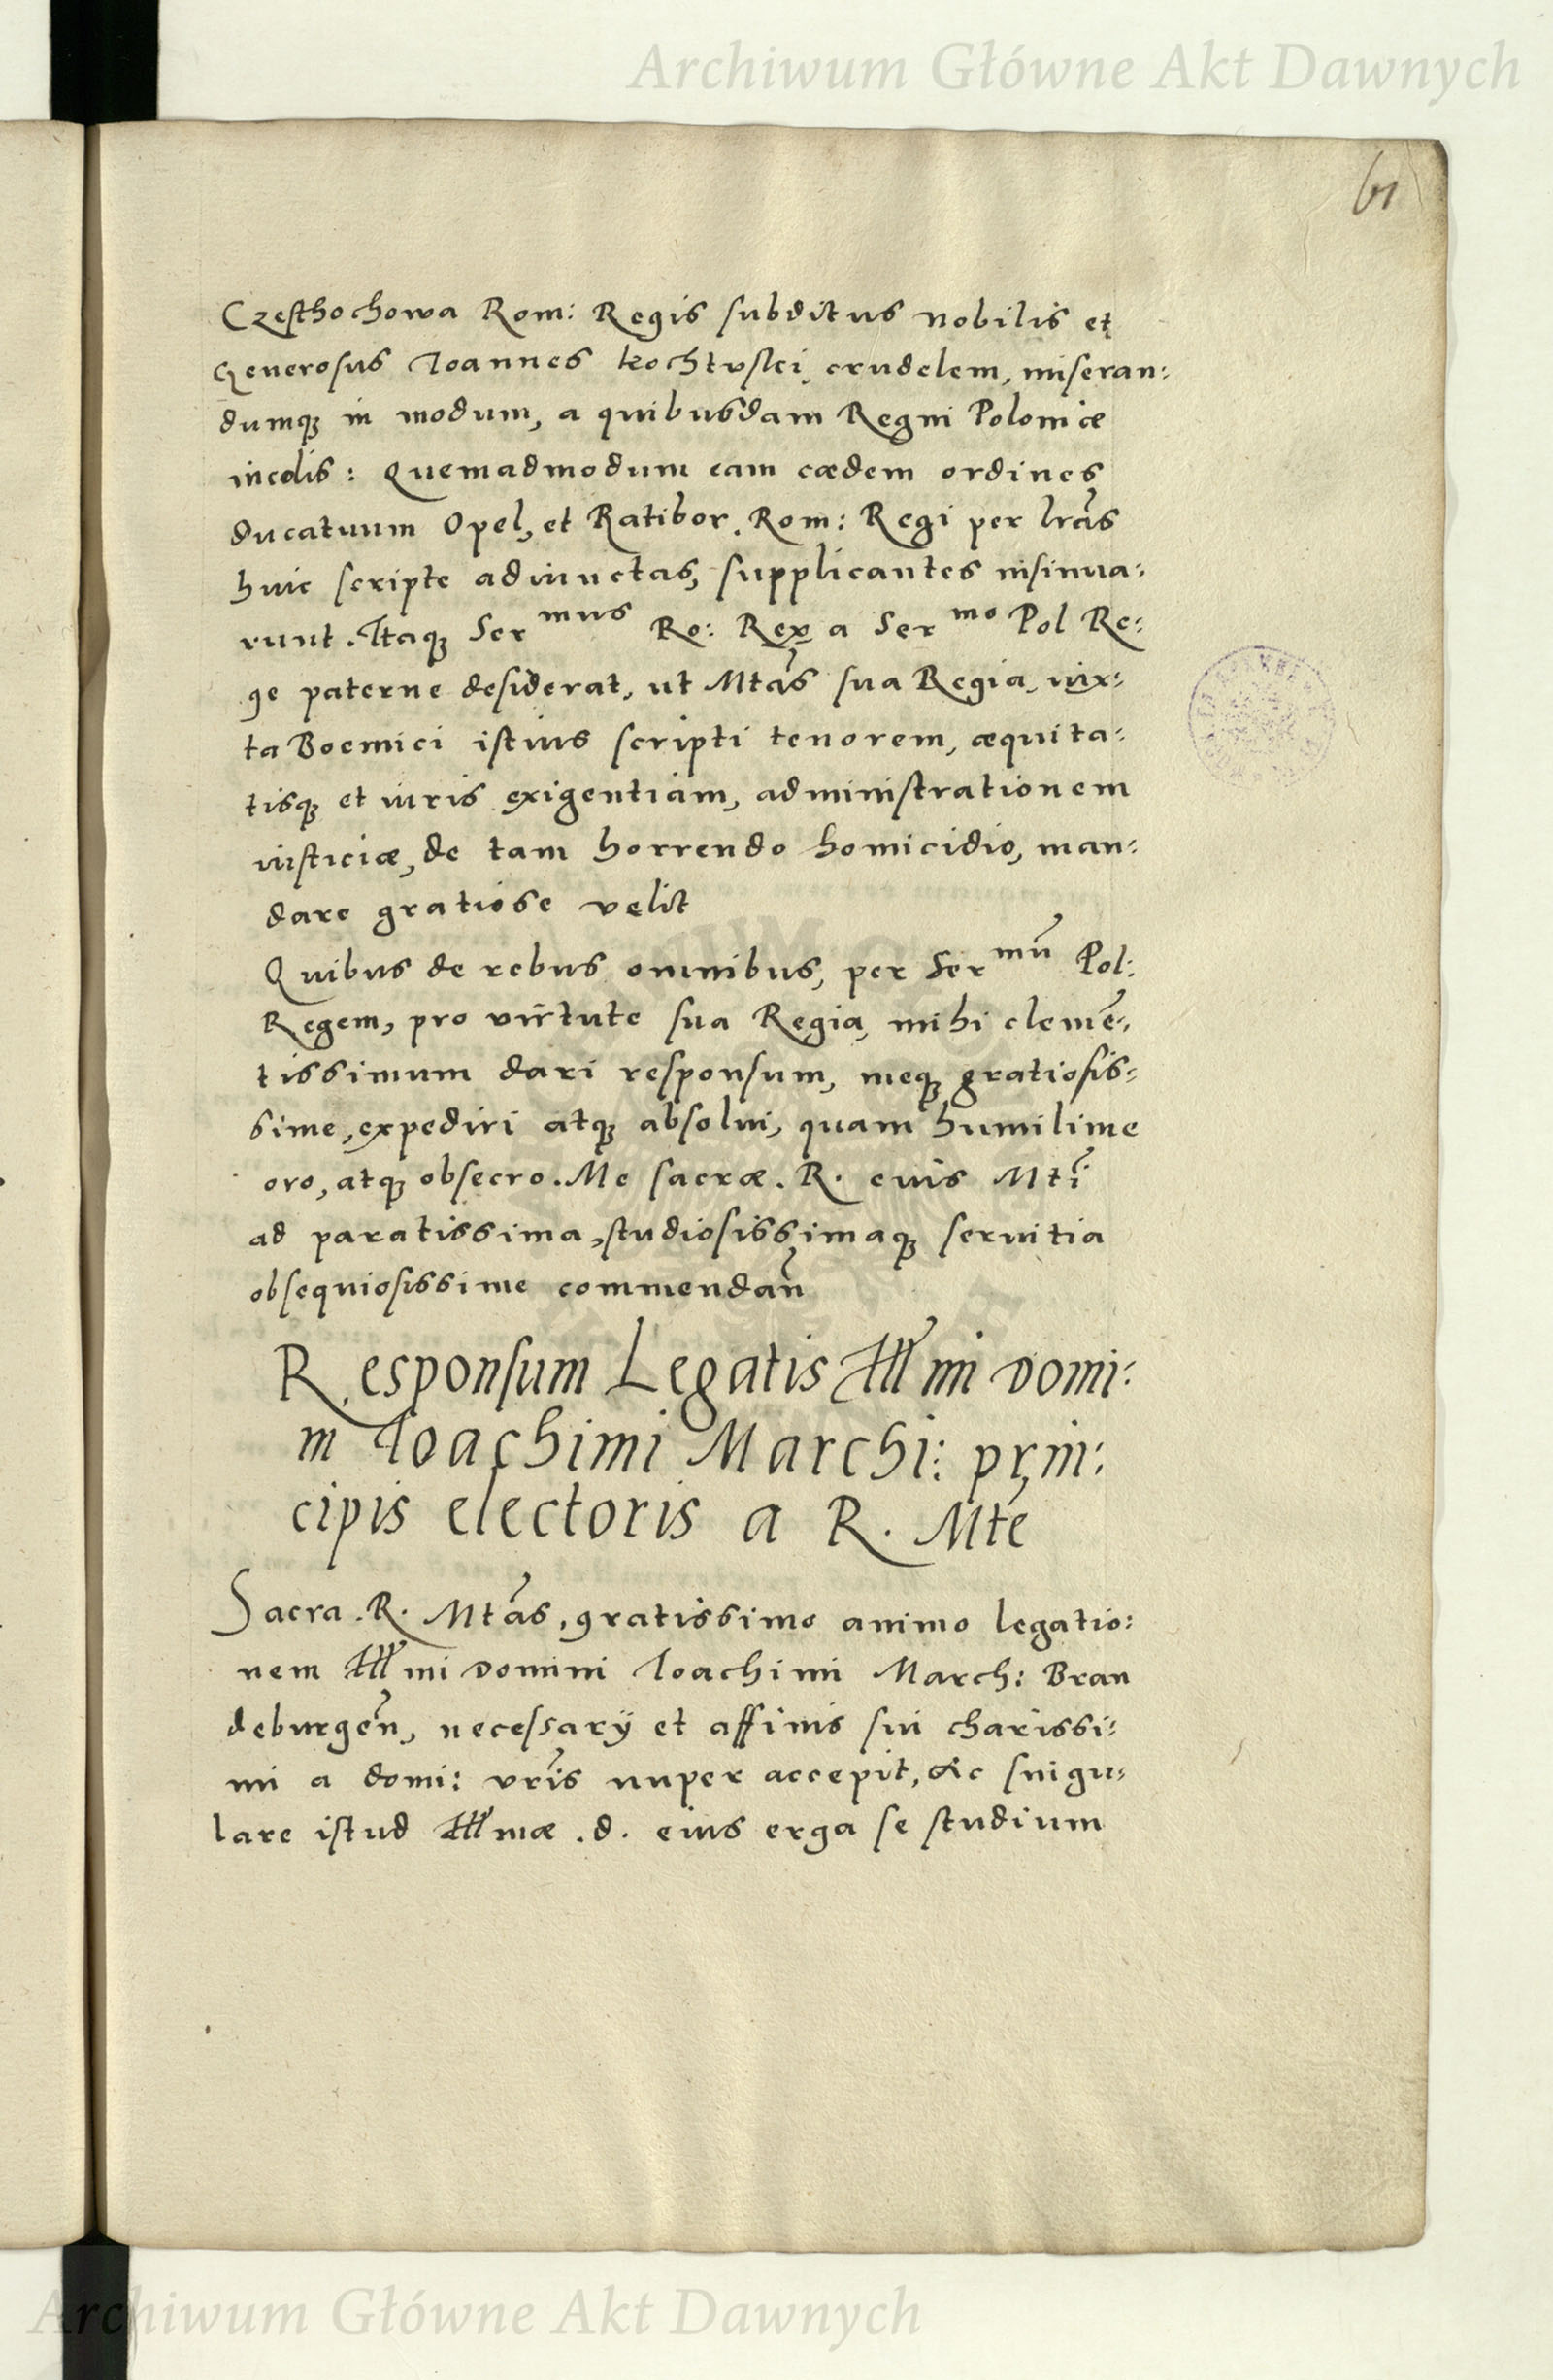 Archiwum Główne Akt Dawnych
61
Czesthochowa Rom: Regis subditus nobilis et
Generosus Ioannes kochtvslci, crudelem, miseran:
dumqȝ in modum, a quibusdam Regni Poloniæ
incolis: Quemadmodum eam cædem ordines
ducatuum Opel, et Ratibor. Rom: Regi per lr̃as
huic scripte adiunctas, supplicantes insinua:
runt. Itaqȝ Ser mus Ro: Rex a Ser mo Pol Re:
ge paterne desiderat, ut Mtãs sua Regia, iux:
ta Boemici istius scripti tenorem, æquita:
tisqȝ et iuris exigentiam, administrationem
iusticiæ, de tam horrendo homicidio, man:
dare gratiose velit
Quibus de rebus omnibus, per Ser mũ Pol:
Regem, pro virtute sua Regia, mihi clemẽ:
tissimum dari responsum, meqȝ gratiosis:
sime, expediri atqȝ absolui, quam humilime
oro, atqȝ obsecro. Me sacræ. R. euis Mtĩ
ad paratissima, studiosissimaqȝ seruitia
obsequiosissime commendañ
Responsum Legatis Illmi domi:
ni Ioachimi Marchi: prin:
cipis electoris a R. Mte
Sacra. R. Mtãs, gratissimo animo legatio:
nem Illmi domini Ioachimi March: Bran
deburgeñ, necessarÿ et affinis sui charissi:
mi a domi: vr̃is nuper accepit, Ac singu:
lare istud Illmæ .d. eius erga se studium
Archiwum Główne Akt Dawnych